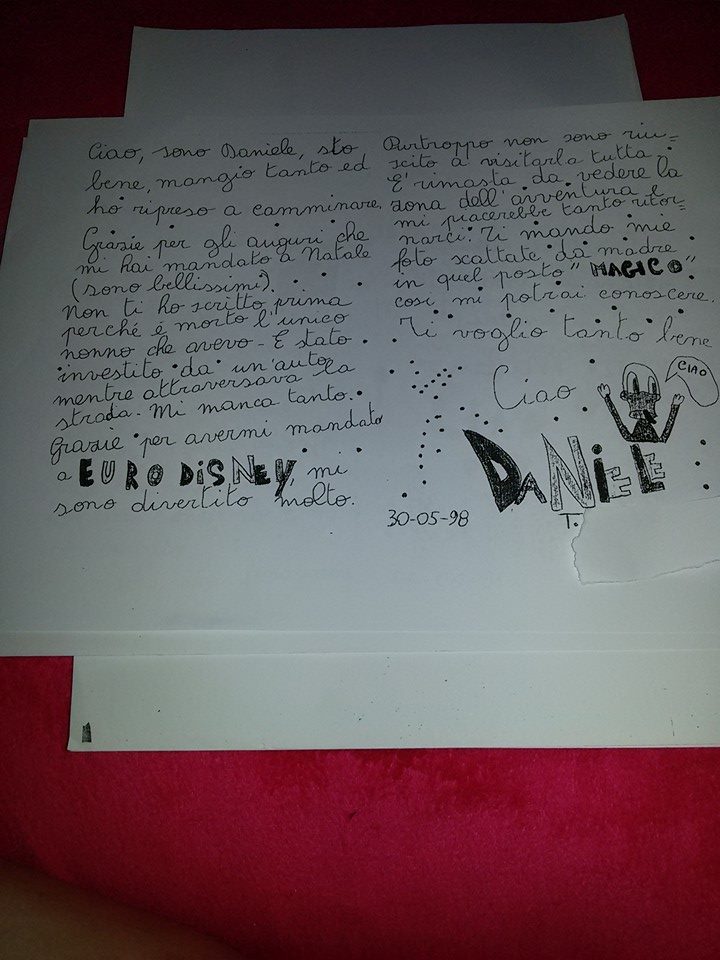 Ciao, sono Daniele, sto
bene, mangio tanto ed
ho ripreso a camminare.
Grazie per gli auguri che
mi hai mandato a Natale
(sono bellissimi).
Non ti ho scritto prima
perché é morto l'unico
nonno che avevo - E stato
investito da un'auto
mentre attraversava la
strada. Mi manca tanto.
Grazie per avermi mandato
a EURO DiSNEY, mi
sono divertito molto.
Purtroppo non sono riu=
scito a visitarla tutta.
E' rimasta da vedere la
zona dell'avventura e
mi piacerebbe tanto ritor=
narci. Ti mando mie
foto scattate da madre
in quel posto "MAGICO"
cosi mi potrai conoscere.
Ti voglio tanto bene
Ciao
CIAO
DANiELE
30-05-98 T.